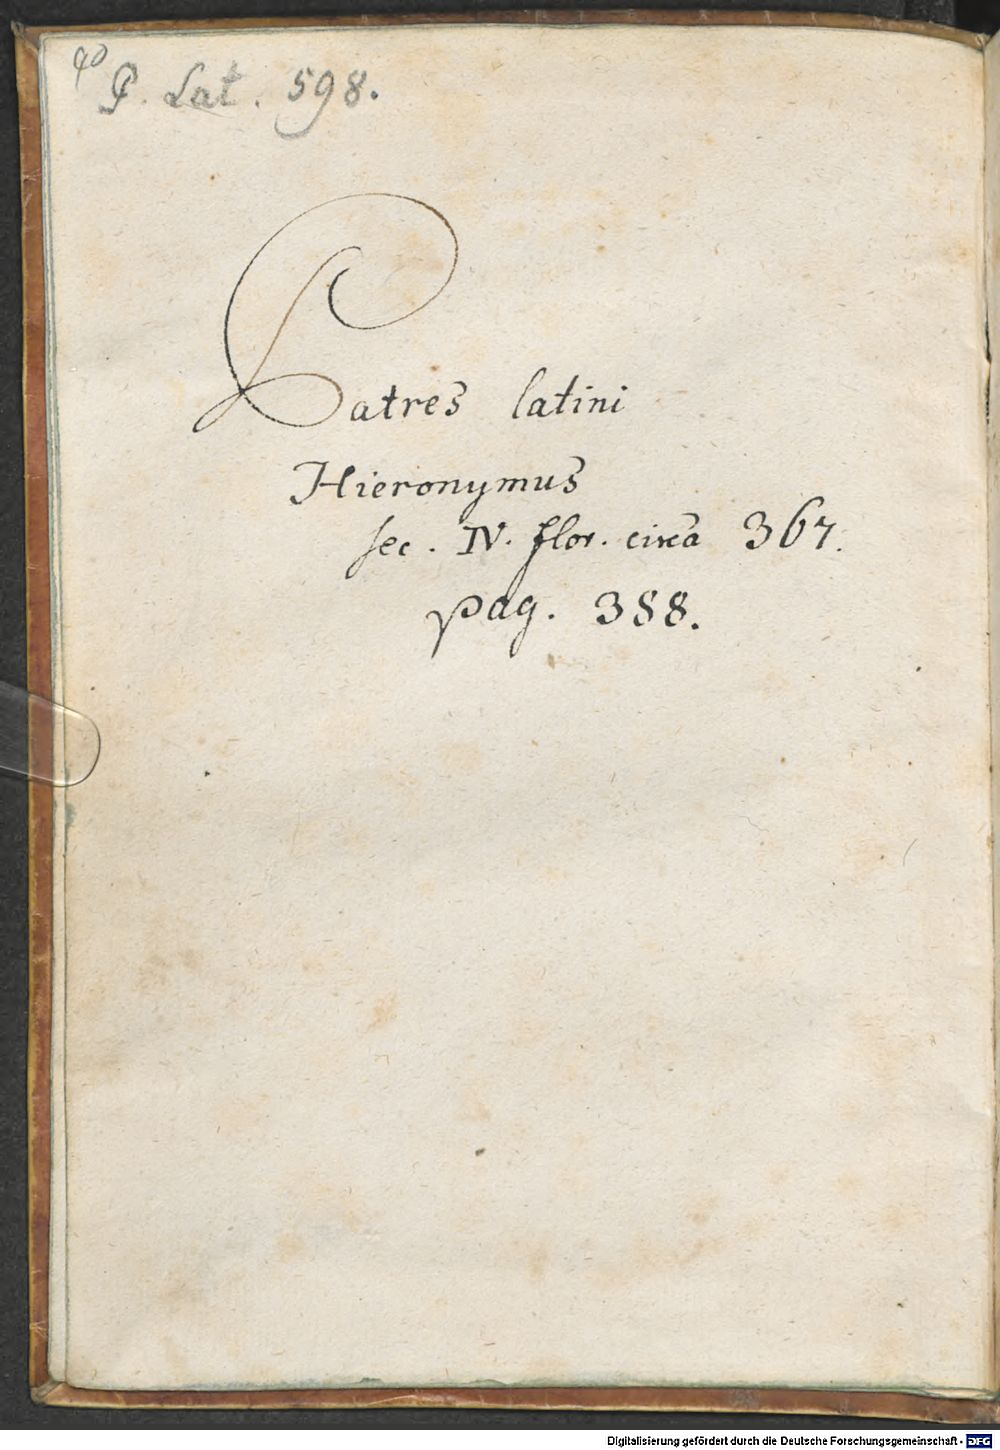 4° P. Lat. 598.
Patres latini
Hieronymus
sec. IV. flor. circa 367.
pag. 388.
Digitalisierung gefördert durch die Deutsche Forschungsgemeinschaft - DFG